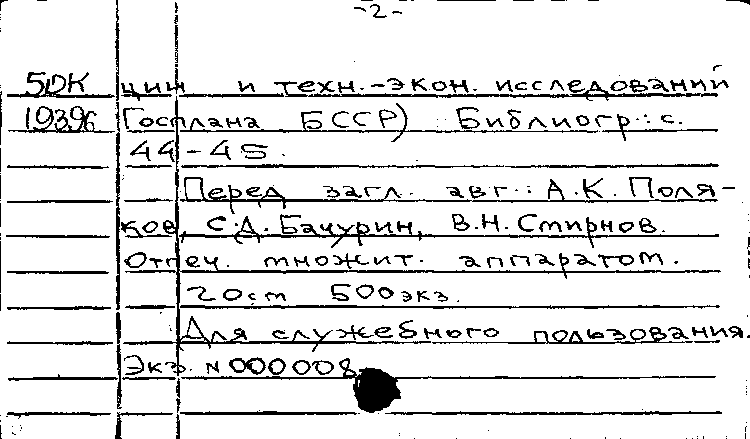 -2-
5ДК ции и техн.-экон. исследований
1939к Госплана БССР) Библиогр.: с.
44-45.
Перед загл. авт.: А.К. Поля-
ков, С.Д. Бачурин, В.Н. Смирнов.
Отпеч. множит. аппаратом.
20 см 500 экз.
Для служебного пользования.
Экз. N 000008